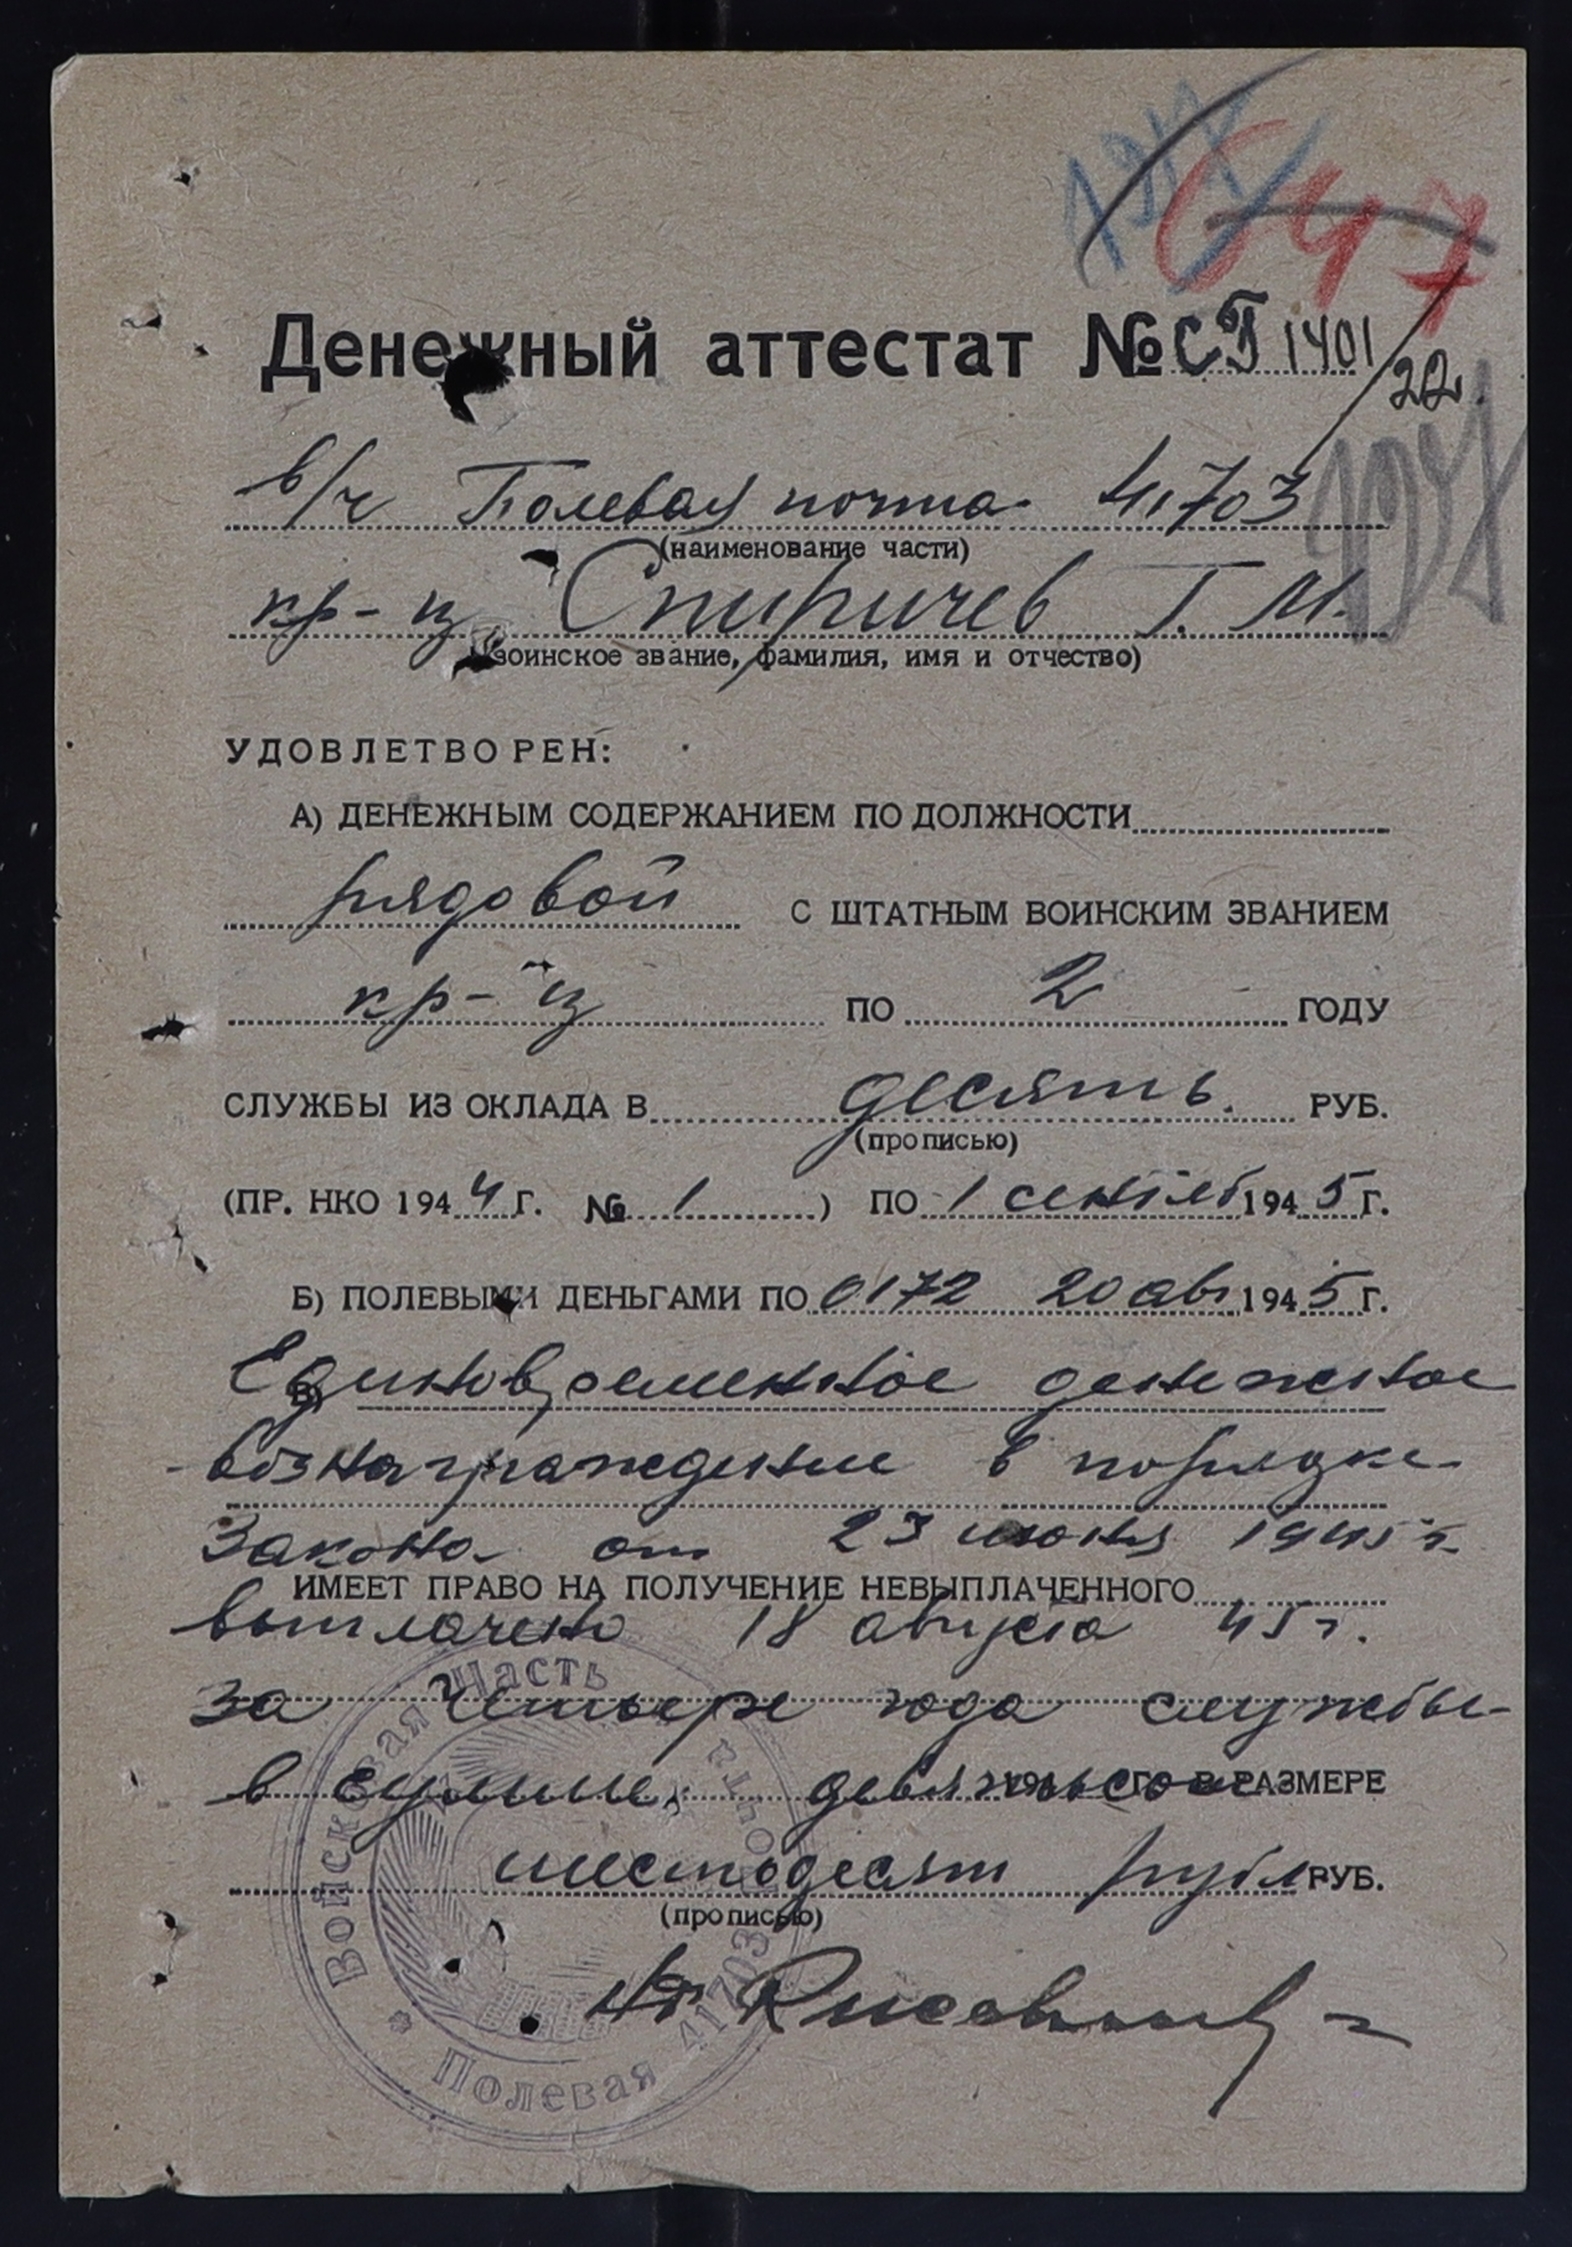 647
Денежный аттестат № СБ 1401/22
в/ч Полевая почта 41703
(наименование части)
кр-ц Спиричев Г. М.
(воинское звание, фамилия, имя и отчество)
УДОВЛЕТВОРЕН:
А) ДЕНЕЖНЫМ СОДЕРЖАНИЕМ ПО ДОЛЖНОСТИ
рядовой С ШТАТНЫМ ВОИНСКИМ ЗВАНИЕМ
кр-ц ПО 2 ГОДУ
СЛУЖБЫ ИЗ ОКЛАДА В десять РУБ.
(прописью)
(ПР. НКО 1944 Г. № 1 ) ПО 1 сентяб 1945 Г.
Б) ПОЛЕВЫМИ ДЕНЬГАМИ ПО 20 авг 1945 Г.
Единовременное денежное
В)
вознаграждение в порядке
Закона от 23 июня 1945 г.
ИМЕЕТ ПРАВО НА ПОЛУЧЕНИЕ НЕВЫПЛАЧЕННОГО
выплачено 18 августа 45 г.
за четыре года службы
в сумме девятьсот 194 Г. В РАЗМЕРЕ
шестьдесят рубл РУБ.
(прописью)
Войсковая часть
Полевая почта 41703